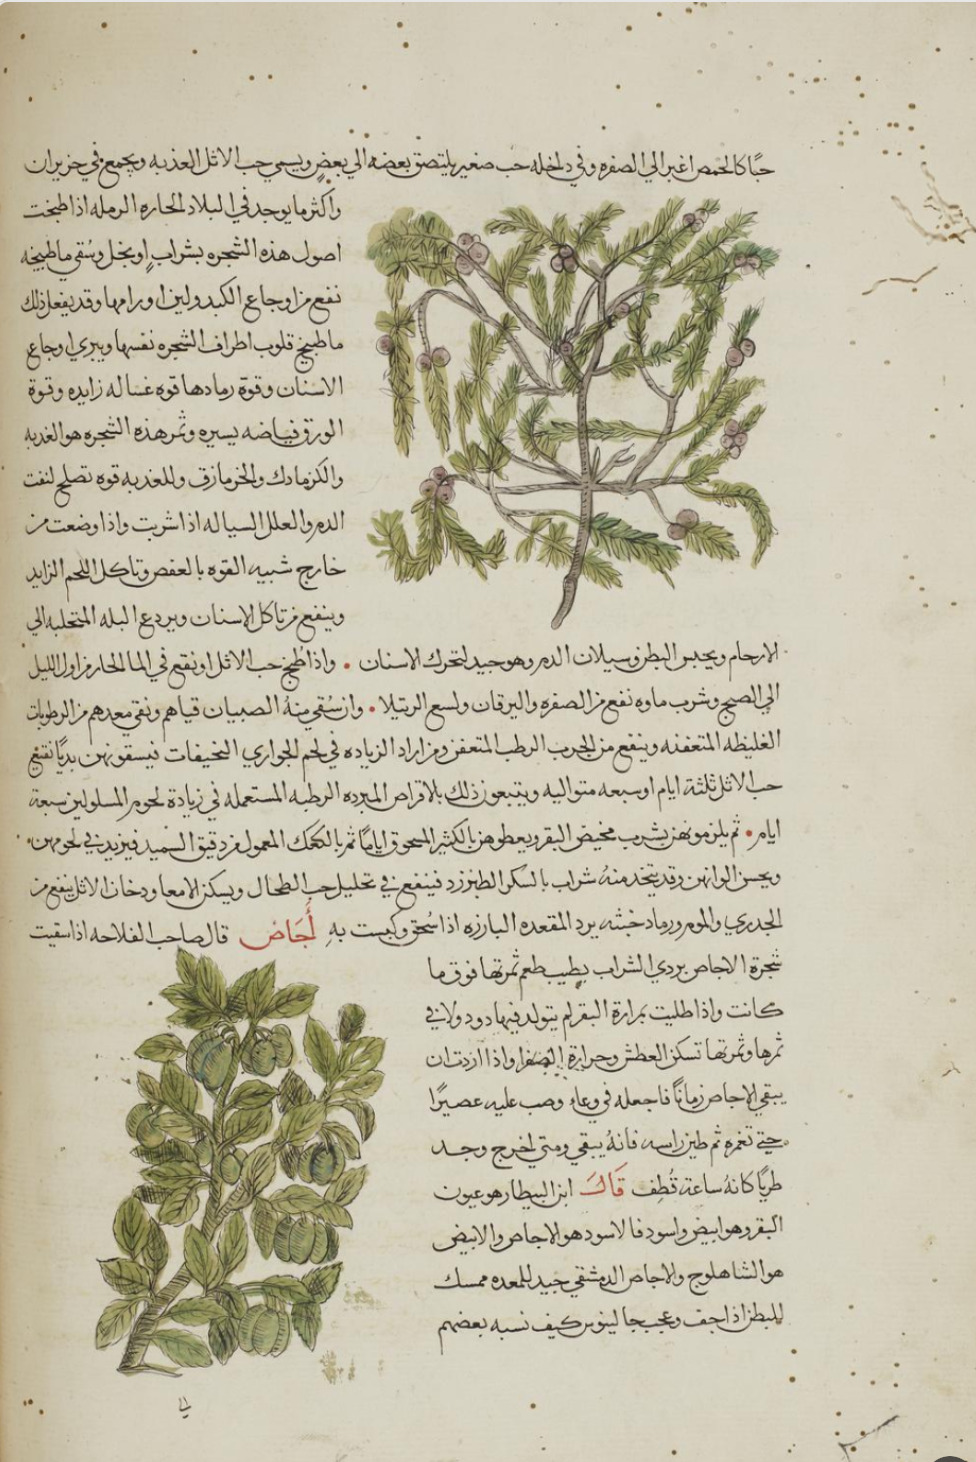 حبًا كالحمص اغبر الي الصفره وفي داخله حب صغير يلتصق بعضه الي بعضٍ ويسمي حب الاثل العذبه ويجمع في حزيران
واكثر ما يوجد في البلاد الحاره الرمله اذا طبخت
اصول هذه الشجره بشرابٍ او بخل وسُقي ما طبيخه
نفع من اوجاع الكبد ولين اورامها وقد يفعل ذلك
ما طبيخ قلوب اطراف الشجره نفسها ويبري اوجاع
الاسنان وقوة رمادها قوه غساله زايده وقوة
الورق قباضه يسيره وثمر هذه الشجره هو العذبه
والكزمادك والخرمازق وللعذبه قوه تصلح لنفث
الدم والعلل السياله اذا شربت واذا وضعت من
خارج شبيه القوه بالعفص وتاكل اللحم الزايد
وينفع من تاكل الاسنان ويردع البله المتحلبه الي
الارحام ويحبس البطن وسيلان الدم وهو جيد لتحرك الاسنان • واذا طُبخ حب الاثل او نقع في الما الحار من اول الليل
الي الصبح وشرب ماوه نفع من الصفره واليرقان ولسع الرتيلا • وان سُقي منهُ الصبيان قياهم ونقي معدهم من الرطوبات
الغليظه المتعفنه وينفع من الجرب الرطب المتعفن ومن اراد الزياده في لحم الجواري النحيفات فيسقونهن بديًا نقيع
حب الاثل ثلثة ايام او سبعه متواليه ويتبعون ذلك بالاقراص المبرده الرطبه المستعمله في زيادة لحوم المسلولين سبعة
ايام • ثم يلزمونهن بشرب مخيض البقر ويعطوهن بالكثير المسحوق ايامًا ثم بالكعك المعمول من دقيق السميد فيزيد في لحومهن •
ويحسن الوانهن وقد يتخذ منهُ شراب بالسكر الطبرزد فينفع في تحليل الطحال ويسكن الامعا ودخان الاثل ينفع من
الجدري والموم ورماد خشبه يرد المقعده البارزه اذا سُحق وكبست به أجَاص قال صاحب الفلاحه اذا سقيت
شجرة الاجاص بردي الشراب يطيب طعم ثمرتها فوق ما
كانت واذا طليت بمرارة البقر لم يتولد فيها دود ولا في
ثمرها وثمرتها تسكن العطش وحرارة الصفرا واذا اردت ان
يبقي الاجاص زمانًا فاجعله في وعاء وصب عليه عصيرًا
حتي تغمره ثم طين راسه فانهُ يبقي ومتي اخرج وجد
طريًا كانهُ ساعة قُطف قَالَ ابن البيطار هو عيون
البقر وهو ابيض واسود فالاسود هو الاجاص والابيض
هو الشاهلوج والاجاص الدمشقي جيد للمعده ممسك
للبطن اذا جف وعجب جالينوس كيف نسبه بعضهم